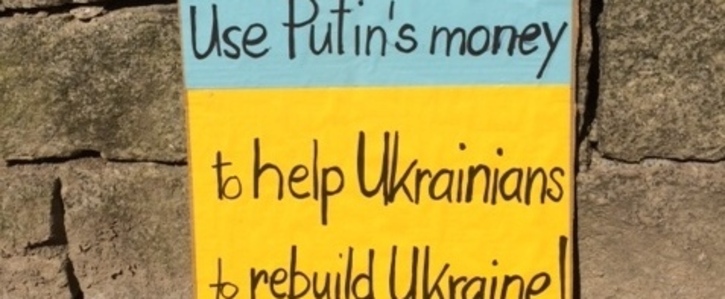 Use Putin's money
to help Ukrainians
to rebuild Ukraine!